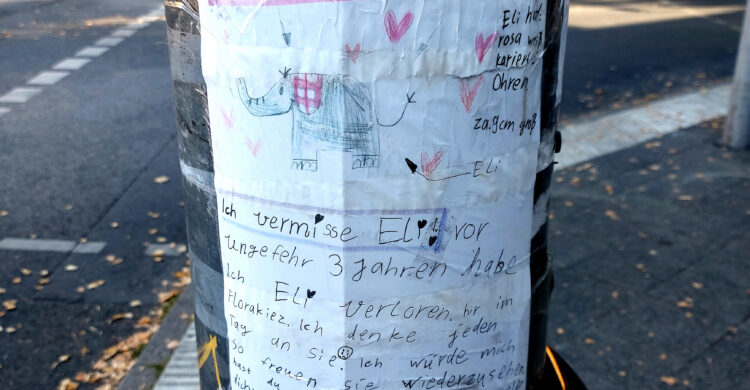 Eli hat
rosa weiß
kariert
Ohren
za.9cm groß
Eli
Ich vermisse Eli! vor
ungefehr 3 Jahren habe
Ich Eli verloren. hir im
Florakiez. Ich denke jeden
Tag an sie. Ich würde mich
so freuen sie wiederzusehen
hast du